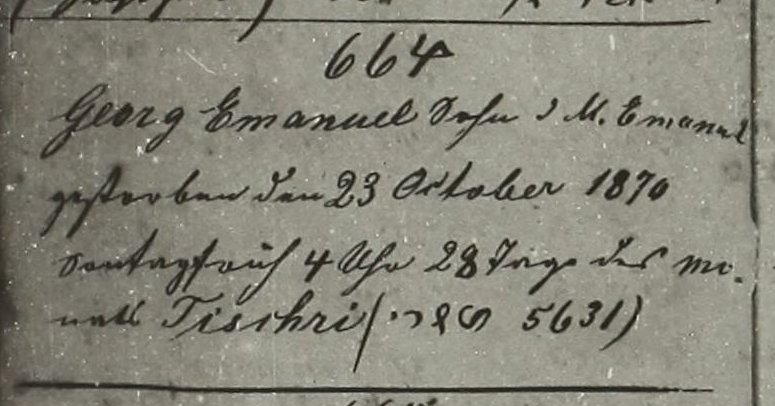 664
Georg Emanuel Sohn d M. Emanuel
gestorben den 23 October 1870
Sontag früh 4 Uhr 28 Tage des Mo-
nats Tischri (תשרי 5631)